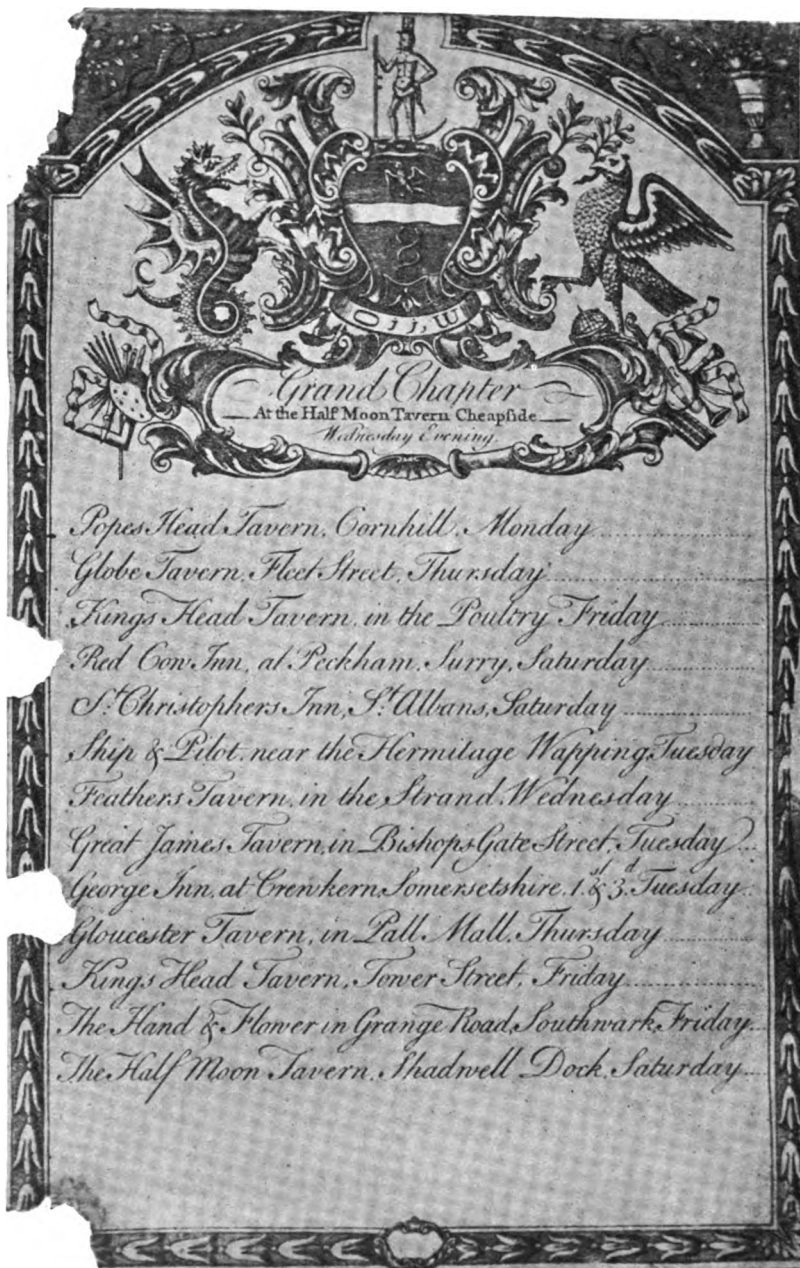 OILW
Grand Chapter
At the Half Moon Tavern Cheapſide
Wednesday Evening.
Popes Head Tavern, Cornhill, Monday
Globe Tavern, Fleet Street, Thursday
Kings Head Tavern, in the Poultry Friday
Red Cow Inn, at Peckham, Surry, Saturday
St. Christophers Inn, St. Albans, Saturday
Ship & Pilot, near the Hermitage Wapping, Tuesday
Feathers Tavern, in the Strand, Wednesday
Great James Tavern, in Bishops Gate Street, Tuesday
George Inn, at Crewkern, Somersetshire, 1st & 3d Tuesday
Gloucester Tavern, in Pall Mall, Thursday
Kings Head Tavern, Tower Street, Friday
The Hand & Flower in Grange Road, Southwark, Friday
The Half Moon Tavern, Shadwell Dock, Saturday